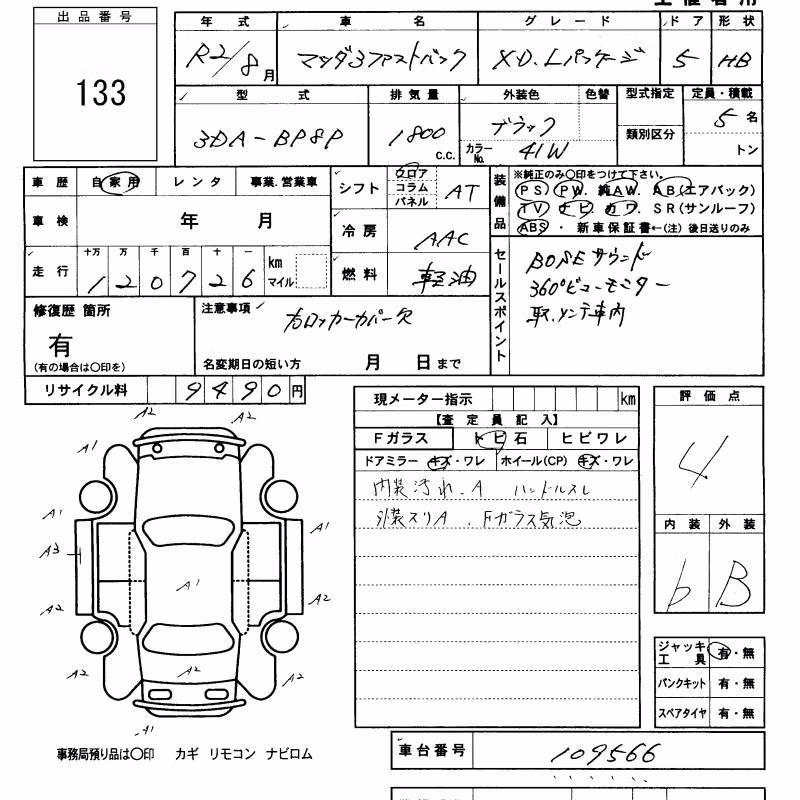 出品番号
133
年式 車名 グレード ドア 形状
R2/8月 マツダ3ファストバック XD.Lパッケージ 5 HB
型式 排気量 外装色 色替 型式指定 定員・積載
3DA-BP8P 1800 c.c. ブラック 類別区分 5名
カラーNo. 41W トン
車歴 自家用 レンタ 事業.営業車
車検 年 月
走行 十万 万 千 百 十 一
120726 km マイル
シフト フロア コラム パネル AT
冷房 AAC
燃料 軽油
装備品
※純正のみ〇印をつけて下さい。
PS PW 純AW. AB(エアバック)
TV ナビ カワ SR(サンルーフ)
ABS・新車保証書←(注)後日送りのみ
セールスポイント
BOSEサウンド
360°ビューモニター
取.メンテ車内
修復歴 箇所
有
(有の場合は〇印を)
注意事項
カロッカーカバー欠
名変期日の短い方 月 日まで
リサイクル料 9490円
現メーター指示 km
【査定員記入】
Fガラス トビ石 ヒビワレ
ドアミラー キズ・ワレ ホイール(CP) キズ・ワレ
内装汚れ.A ハンドルスレ
外装スリA.Fガラス気泡
評価点
4
内装 外装
b B
A2 A2
A1
A1 A1
A3
A1
A2 A2
A2 A2 A2
A1
ジャッキ工具 有・無
パンクキット 有・無
スペアタイヤ 有・無
事務局預り品は〇印 カギ リモコン ナビロム
車台番号 109566